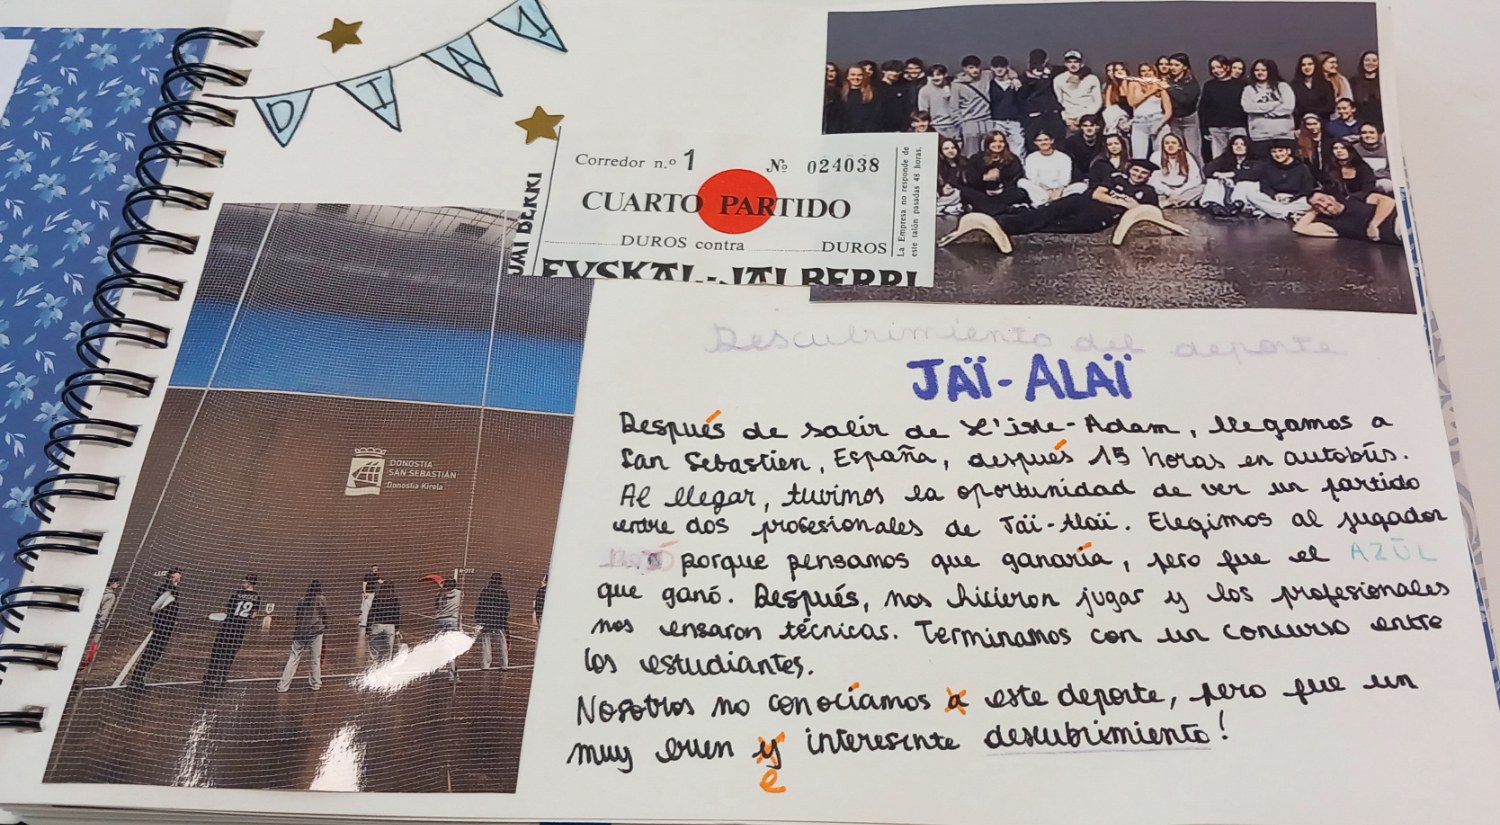 DIA 1
Corredor n.º 1 Nº 024038
CUARTO PARTIDO
DUROS contra DUROS
La Empresa no responde de
este talón pasadas 48 horas.
JAI BERRI
EUSKAL-JAI BERRI
DONOSTIA
SAN SEBASTIÁN
Donostia Kirola
12
6
Descubrimiento del deporte
JAÏ-ALAÏ
Después de salir de L'isle-Adam, llegamos a
San Sebastien, España, después 15 horas en autobús.
Al llegar, tuvimos la oportunidad de ver un partido
entre dos profesionales de Jaï-Alaï. Elegimos al jugador
porque pensamos que ganaría, pero fue el AZÛL
que ganó. Después, nos hicieron jugar y los profesionales
nos ensaron técnicas. Terminamos con un concurso entre
los estudiantes.
Nosotros no conocíamos a este deporte, pero fue un
muy buen y interesente descubrimiento!
e